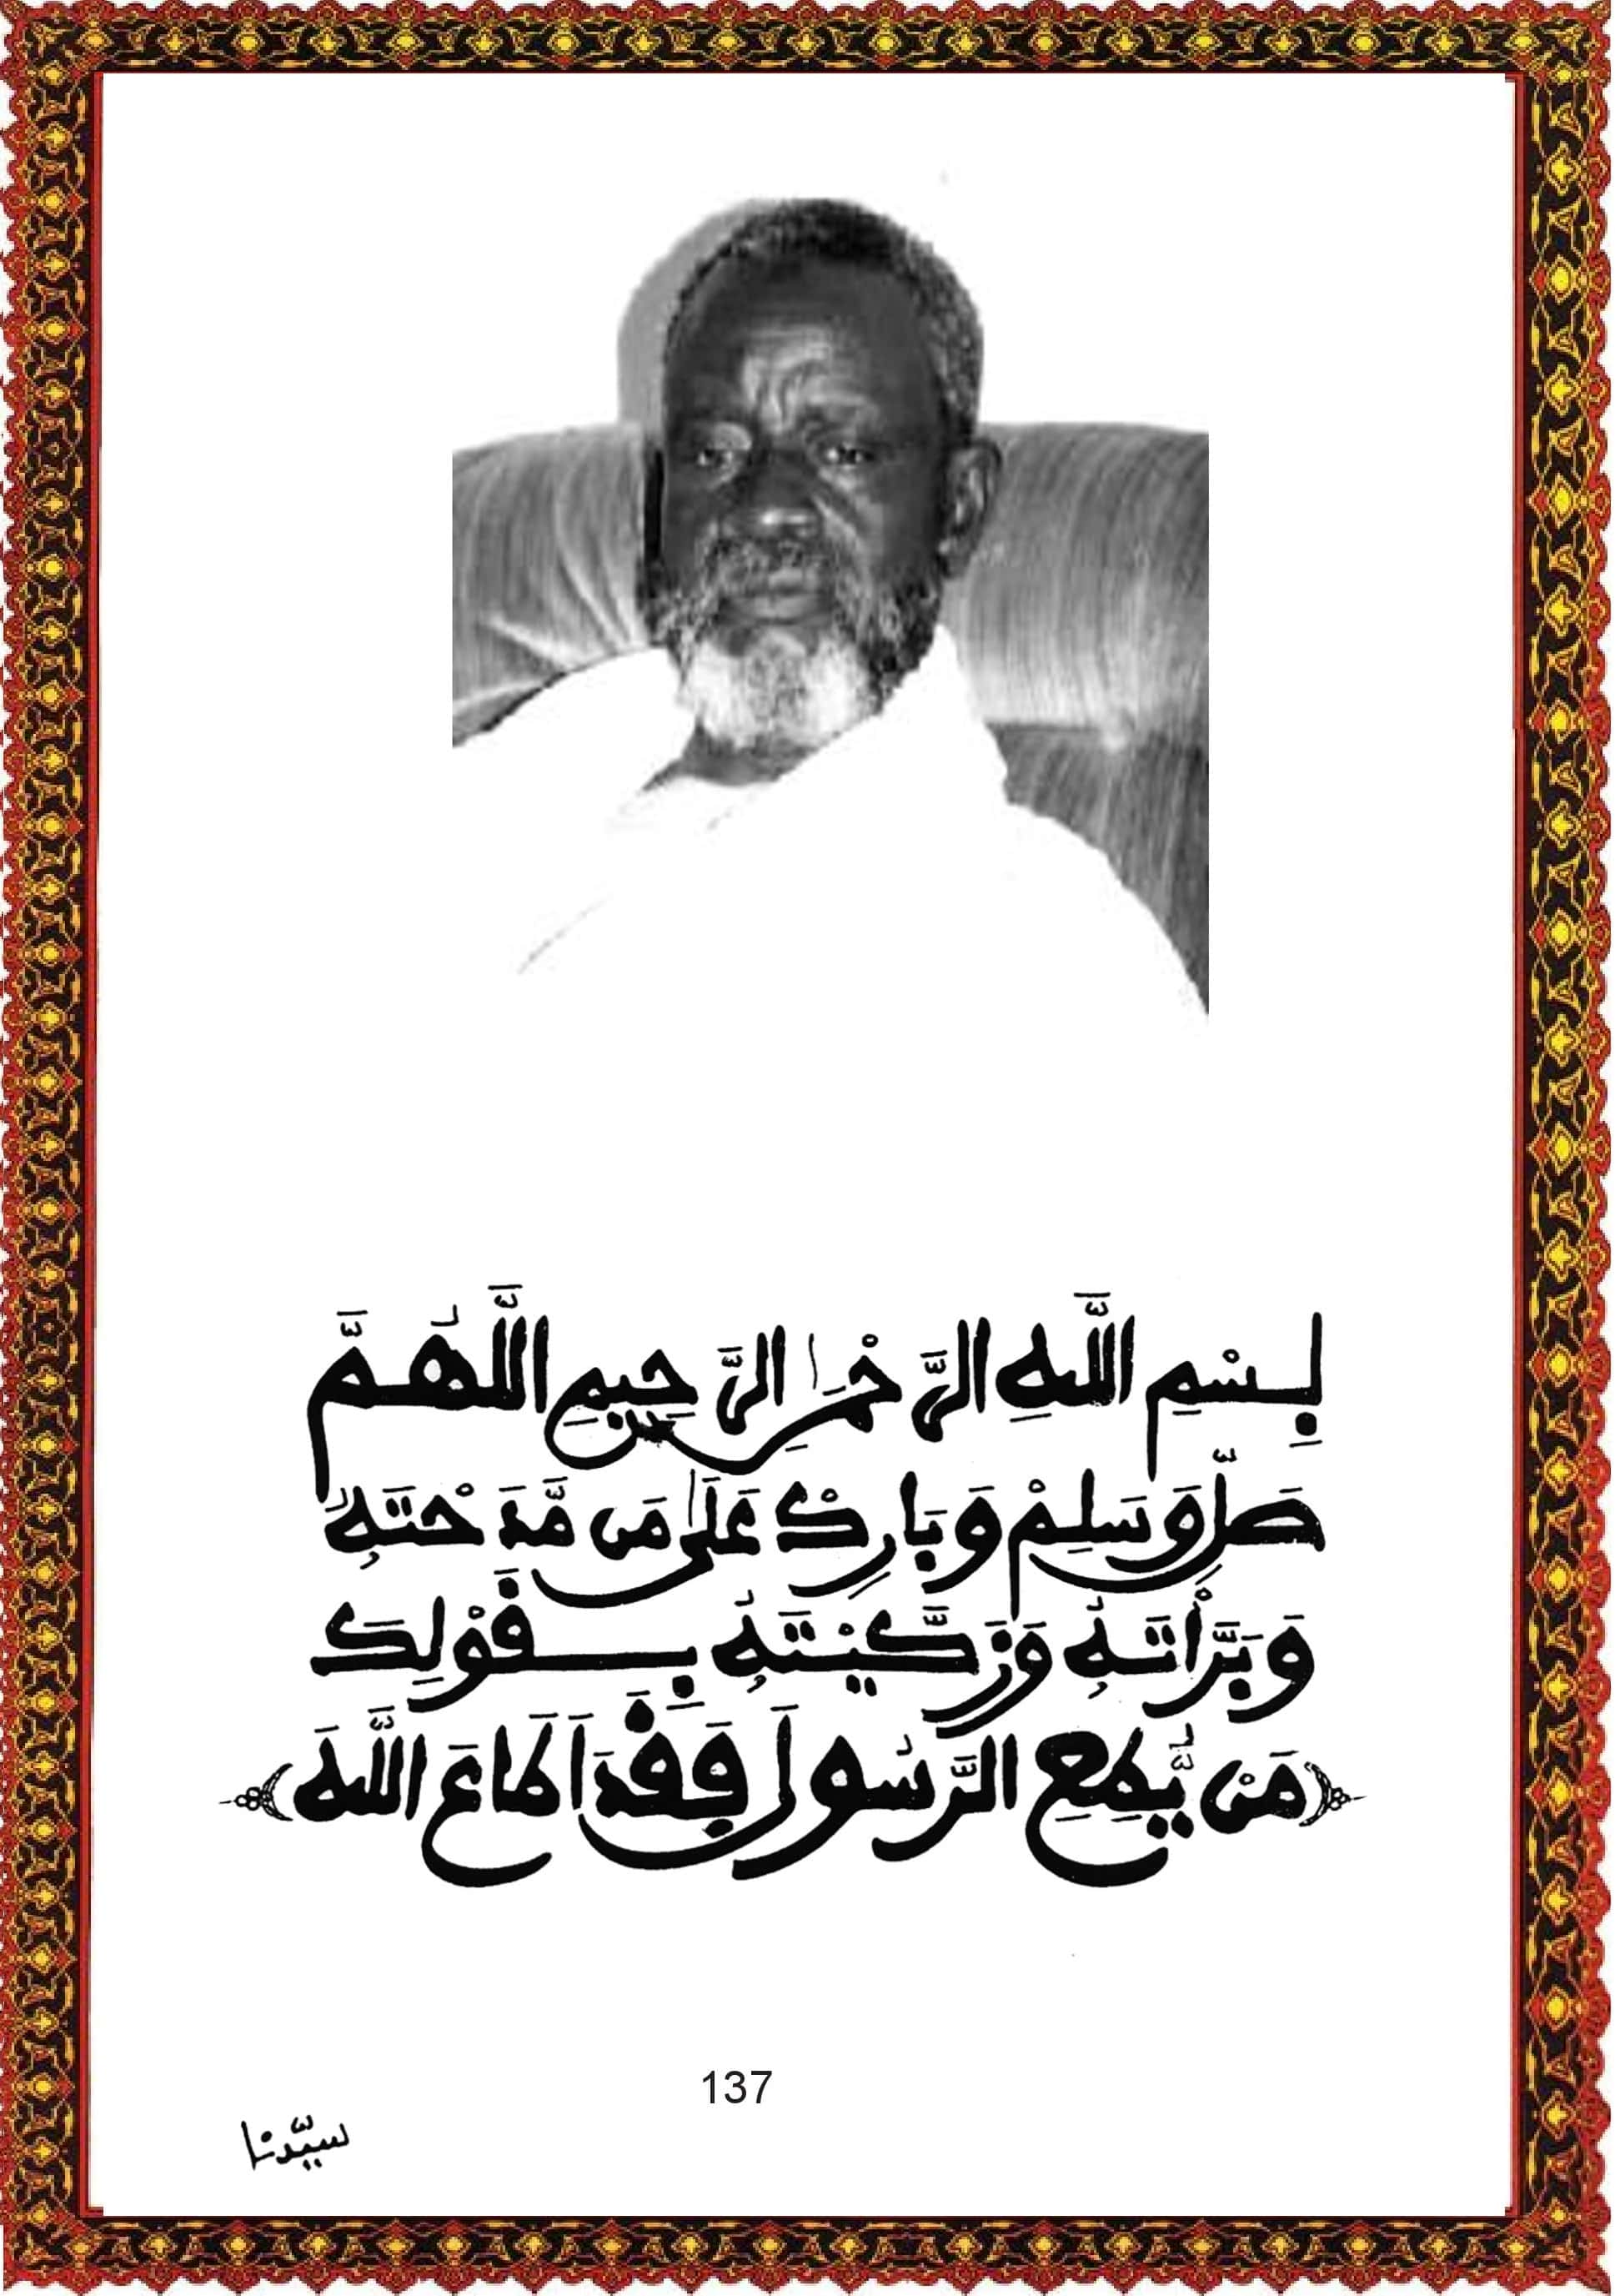 بِسْمِ اللَّهِ الرَّحْمَٰنِ الرَّحِيمِ اللَّهُمَّ
صَلِّ وَسَلِّمْ وَبَارِكْ عَلَىٰ مَن مَّدَحْتَهُ
وَبَرَّأْتَهُ وَزَكَّيْتَهُ بِقَوْلِكَ
﴿مَنْ يُّطِعِ الرَّسُولَ فَقَدَ اَطَاعَ اللَّهَ﴾
137
سيّدنا